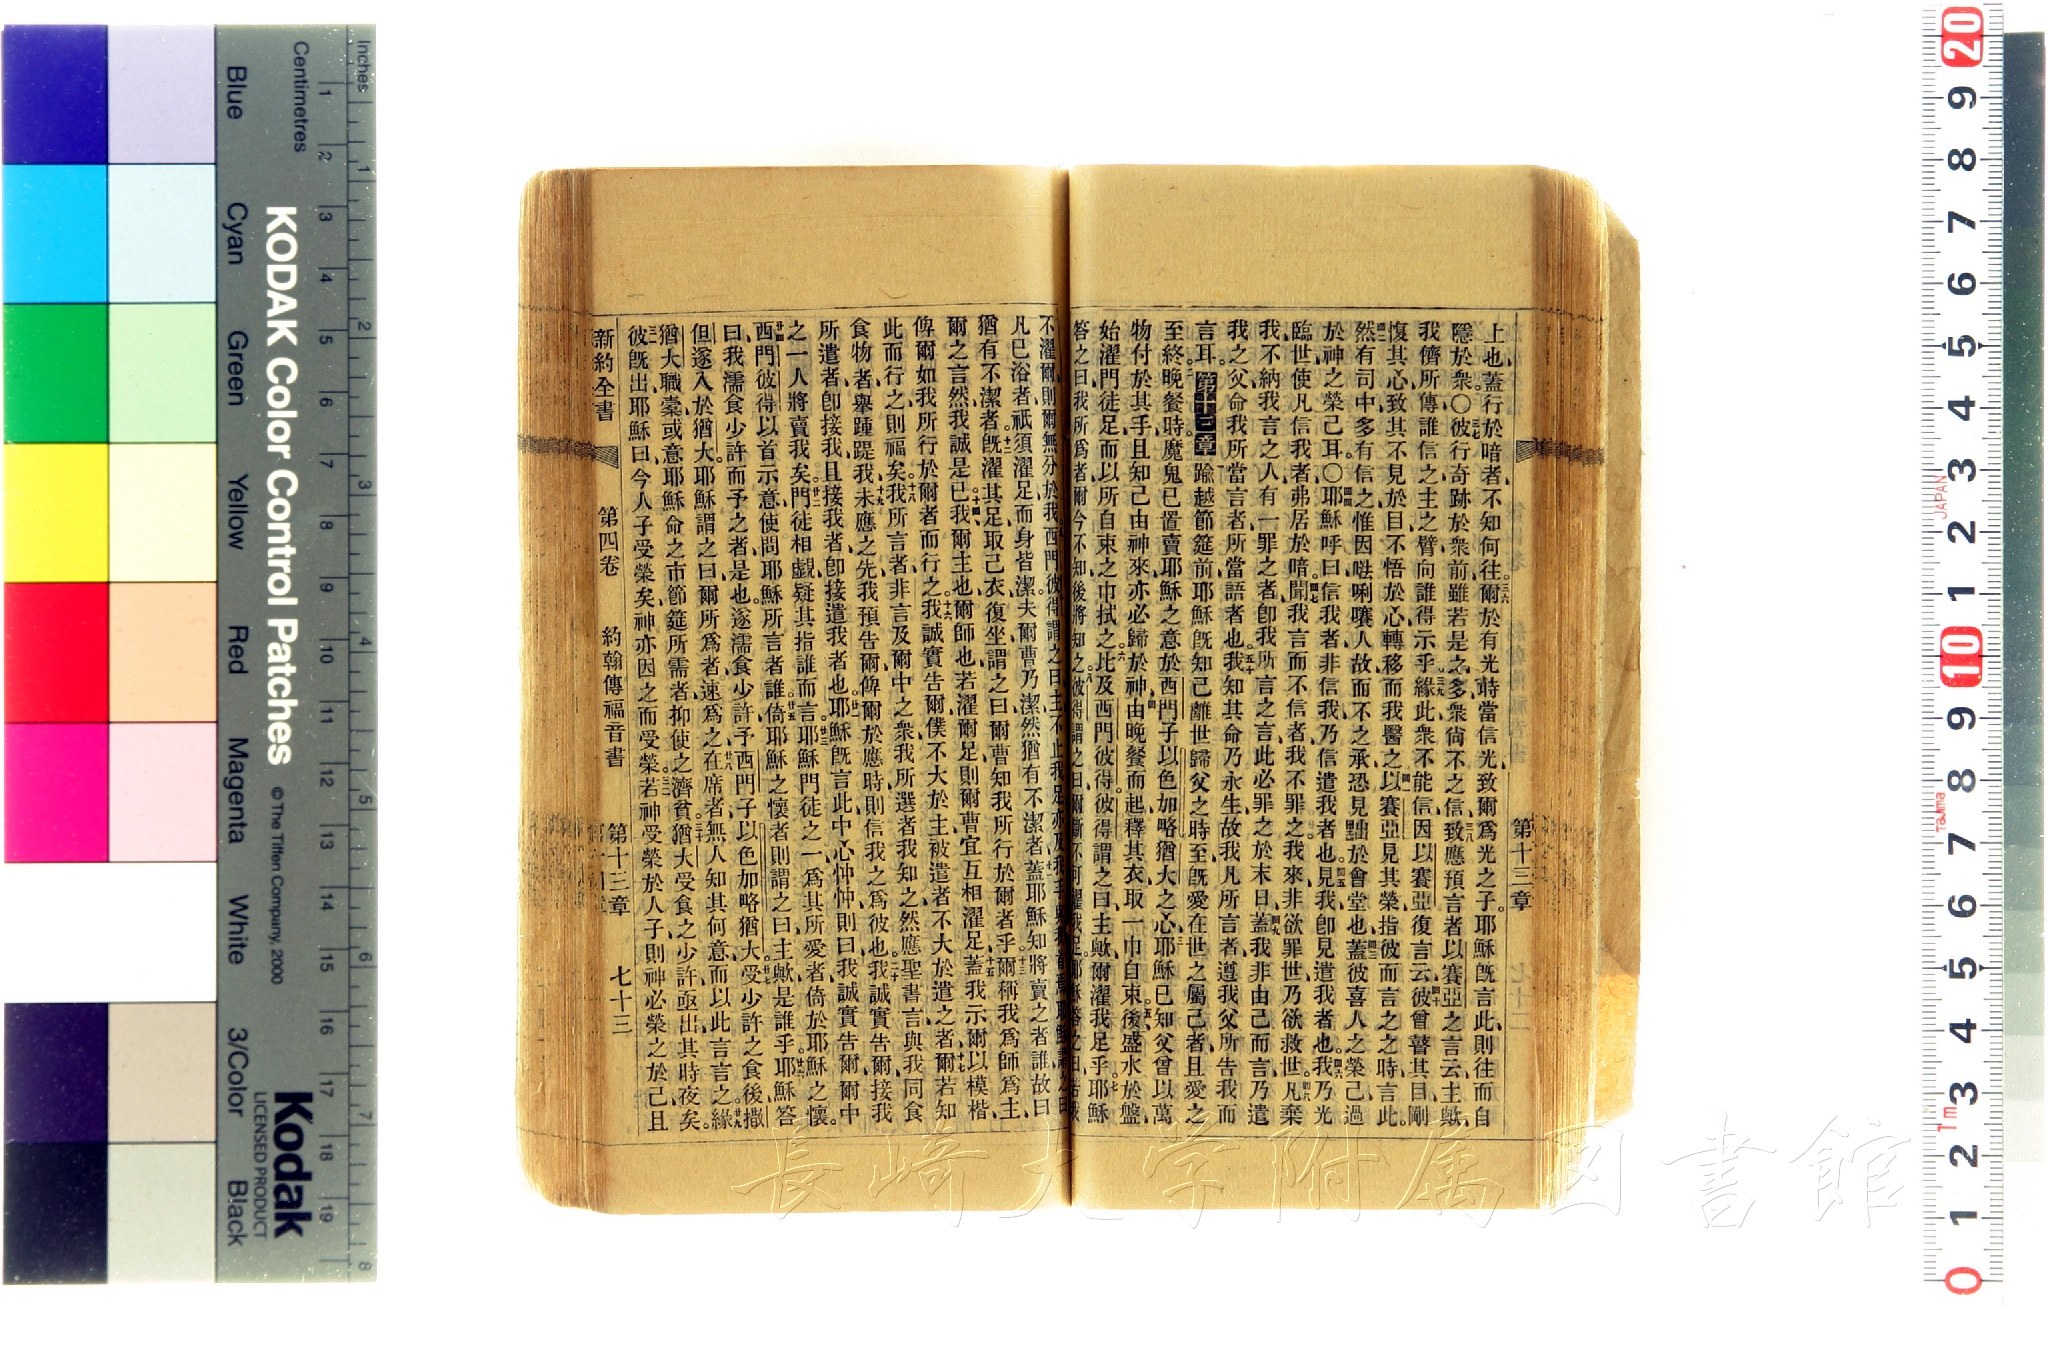 上也蓋行於暗者不知何往爾於有光時當信光致爾爲光之子耶穌旣言此則往而自
隱於衆〇彼行奇跡於衆前雖若是之多衆尙不之信致應預言者以賽亞之言云主歟
我儕所傳誰信之主之臂向誰得示乎緣此衆不能信因以賽亞復言云彼曾瞽其目剛
愎其心致其不見於目不悟於心轉移而我醫之以賽亞見其榮指彼而言之之時言此
然有司中多有信之惟因𠵽唎嚷人故而不之承恐見黜於會堂也蓋彼喜人之榮己過
於神之榮己耳〇耶穌呼曰信我者非信我乃信遣我者也見我卽見遣我者也我乃光
臨世使凡信我者弗居於暗聞我言而不信者我不罪之我來非欲罪世乃欲救世凡棄
我不納我言之人有一罪之者卽我所言之言此必罪之於末日蓋我非由己而言乃遣
我之父命我所當言者所當語者也我知其命乃永生故我凡所言者遵我父所告我而
言耳 第十三章 踰越節筵前耶穌旣知己離世歸父之時至旣愛在世之屬己者且愛之
至終晚餐時魔鬼已置賣耶穌之意於西門子以色加略猶大之心耶穌已知父曾以萬
物付於其手且知己由神來亦必歸於神由晚餐而起釋其衣取一巾自束後盛水於盤
始濯門徒足而以所自束之巾拭之比及西門彼得彼得謂之曰主歟爾濯我足乎耶穌
答之曰我所爲者爾今不知後將知之彼得謂之曰爾
第十三章
不濯爾則爾無分於我西門彼得謂之曰主不止我足
凡已浴者祇須濯足而身皆潔夫爾曹乃潔然猶有不潔者蓋耶穌知將賣之者誰故曰
猶有不潔者旣濯其足取己衣復坐謂之曰爾曹知我所行於爾者乎爾稱我爲師爲主
爾之言然我誠是已我爾主也爾師也若濯爾足則爾曹宜互相濯足蓋我示爾以模楷
俾爾如我所行於爾者而行之我誠實告爾僕不大於主被遣者不大於遣之者爾若知
此而行之則福矣我所言者非言及爾中之衆我所選者我知之然應聖書言與我同食
食物者舉踵踶我未應之先我預告爾俾爾於應時則信我之爲彼也我誠實告爾接我
所遣者卽接我且接我者卽接遣我者也耶穌旣言此中心忡忡則曰我誠實告爾爾中
之一人將賣我矣門徒相覷疑其指誰而言耶穌門徒之一爲其所愛者倚於耶穌之懷
西門彼得以首示意使問耶穌所言者誰倚耶穌之懷者則謂之曰主歟是誰乎耶穌答
曰我濡食少許而予之者是也遂濡食少許予西門子以色加略猶大受少許之食後撒
但遂入於猶大耶穌謂之曰爾所爲者速爲之在席者無人知其何意而以此言言之緣
猶大職槖或意耶穌命之市節筵所需者抑使之濟貧猶大受食之少許亟出其時夜矣
彼旣出耶穌曰今人子受榮矣神亦因之而受榮若神受榮於人子則神必榮之於己且
新約全書 第四卷 約翰傳福音書 第十三章 七十三
KODAK Color Control Patches © The Tiffen Company, 2000
Kodak LICENSED PRODUCT
Inches
Centimetres
Blue Cyan Green Yellow Red Magenta White 3/Color Black
JAPAN
Tajima
長崎大学附属図書館